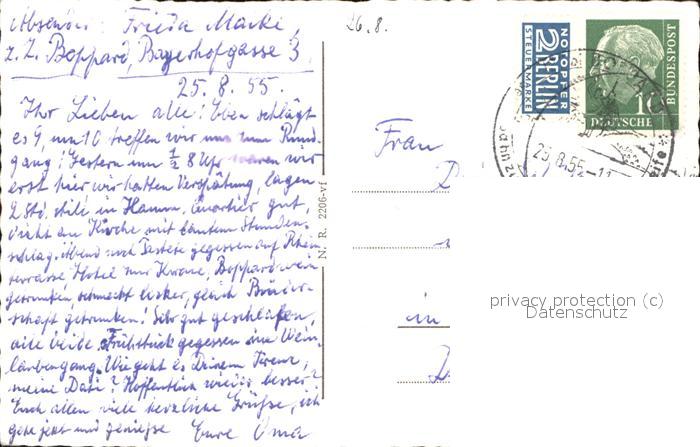 Absender: Frieda Macke,
z. Z. Boppard, Bayerhofgasse 3.
26.8.
25. 8. 55.
Ihr Lieben alle! Eben schlägt
es 9, um 10 treffen wir uns zum Rund-
gang! Gestern um ½ 8 Uhr waren wir
erst hier wir hatten Verspätung, lagen
2 Std. still in Hamm, Quartier gut,
dicht an Kirche mit lautem Stunden-
schlag. Abend noch Pastete gegessen auf Rhein
terrasse Hotel zur Krone, Boppardwein
getrunken schmeckt lecker, gleich Brüder-
schaft getrunken! Sehr gut geschlafen,
alle beide Frühstück gegessen im Wein-
laubengang. Wie geht es Deinem
meine Hoffentlich wieder besser?
Euch allen viele herzliche Grüße, ich
gehe jetzt und genieße Eure Oma
N. R. 2206-vf
NOTOPFER
2 BERLIN
STEUERMARKE
10
DEUTSCHE
BUNDESPOST
25.8.55-11
Frau
in
privacy protection (c)
Datenschutz